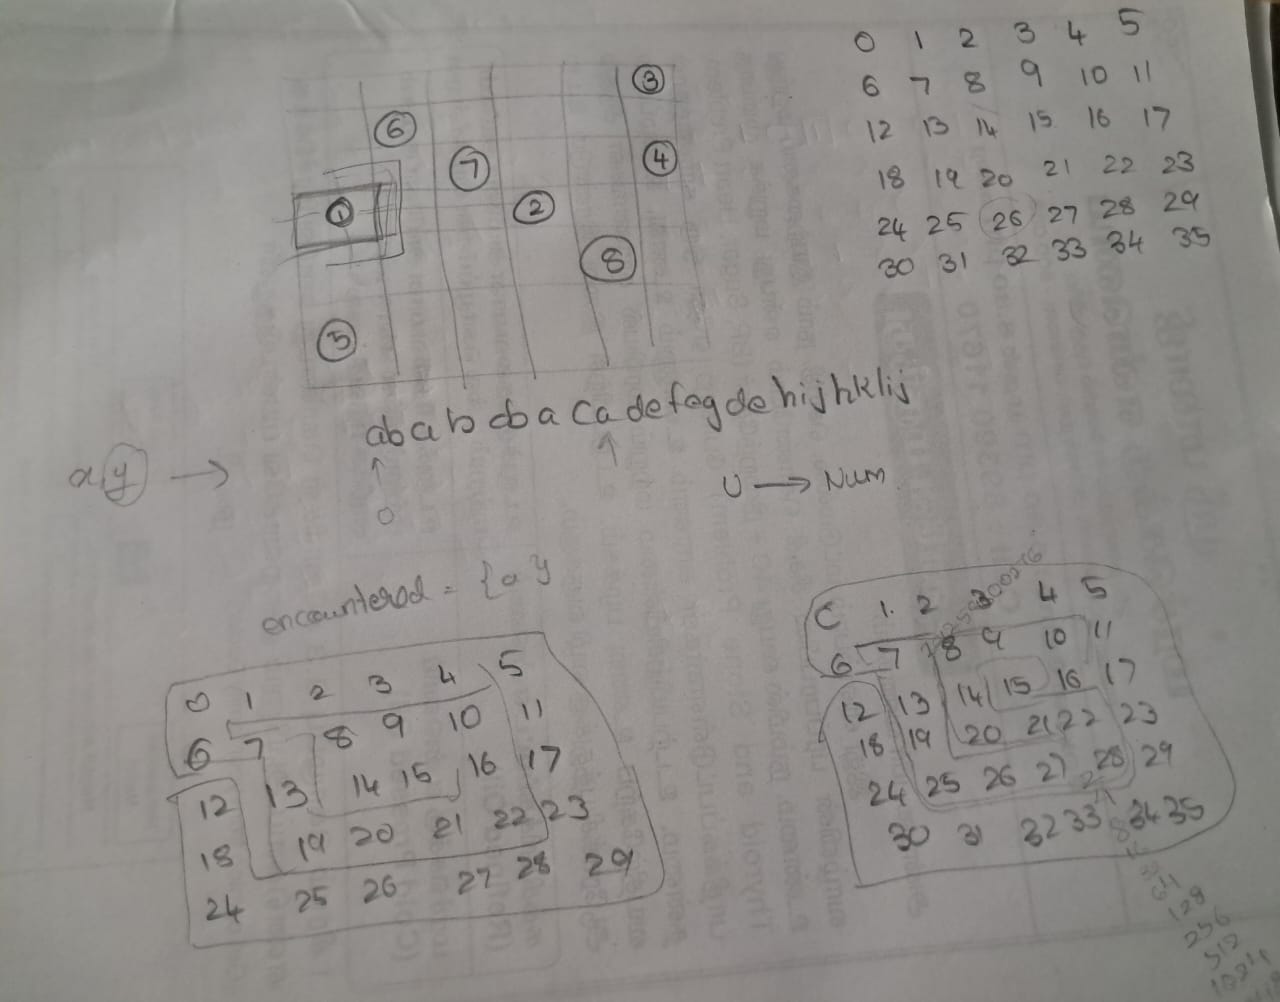 ③
⑥
⑦ ④
① ②
⑧
⑤
0 1 2 3 4 5
6 7 8 9 10 11
12 13 14 15 16 17
18 19 20 21 22 23
24 25 26 27 28 29
30 31 32 33 34 35
ababcbacadefegdehijhklij
x,y →
0
U → Num
encountered = {a}
0 1 2 3 4 5
6 7 8 9 10 11
12 13 14 15 16 17
18 19 20 21 22 23
24 25 26 27 28 29
1 2 3 4 5
6 7 8 9 10 11
12 13 14 15 16 17
18 19 20 21 22 23
24 25 26 27 28 29
30 31 32 33 34 35
128
256
512